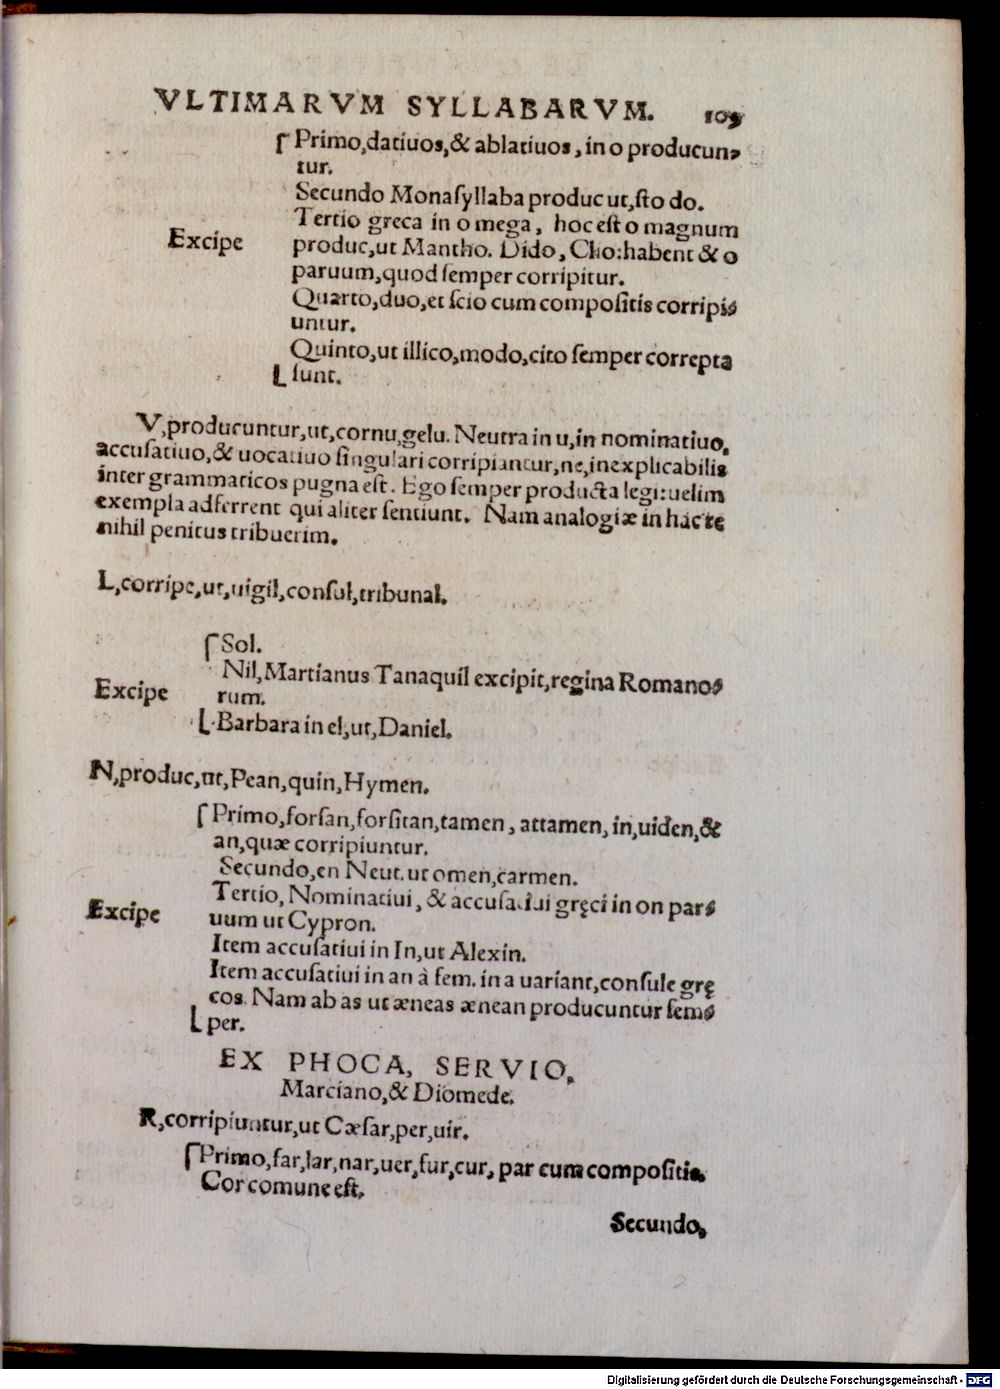 VLTIMARVM SYLLABARVM. 109
Primo,datiuos,& ablatiuos, in o producun-
tur.
Secundo Monaſyllaba produc ut,ſto do.
Tertio greca in o mega, hoc eſt o magnum
Excipe produc,ut Mantho. Dido, Cho:habent & o
paruum,quod ſemper corripitur.
Quarto,duo,et ſcio cum compoſitis corripi-
untur.
Quinto,ut illico,modo,cito ſemper correpta
ſunt.
V,producuntur,ut,cornu,gelu. Neutra in u,in nominatiuo,
accuſatiuo,& uocatiuo ſingulari corripiantur,ne,inexplicabilis
inter grammaticos pugna eſt. Ego ſemper producta legi:uelim
exempla adferrent qui aliter ſentiunt. Nam analogiæ in hac re
nihil penitus tribuerim.
L,corripe,ut,uigil,conſul,tribunal.
Sol.
Nil,Martianus Tanaquil excipit,regina Romano-
Excipe rum.
Barbara in el,ut,Daniel.
N,produc,ut,Pean,quin,Hymen.
Primo,forſan,forſitan,tamen, attamen, in,uiden,&
an,quæ corripiuntur.
Secundo,en Neut. ut omen,carmen.
Tertio, Nominatiui, & accuſatiui gręci in on par-
Excipe uum ut Cypron.
Item accuſatiui in In,ut Alexin.
Item accuſatiui in an à fem. in a uariant,conſule grę
cos. Nam ab as ut æneas ænean producuntur ſem-
per.
EX PHOCA, SERVIO,
Marciano,& Diomede.
R,corripiuntur,ut Cæſar,per,uir.
Primo,far,lar,nar,uer,fur,cur, par cum compoſitis.
Cor comune eſt.
Secundo,
Digitalisierung gefördert durch die Deutsche Forschungsgemeinschaft - DFG